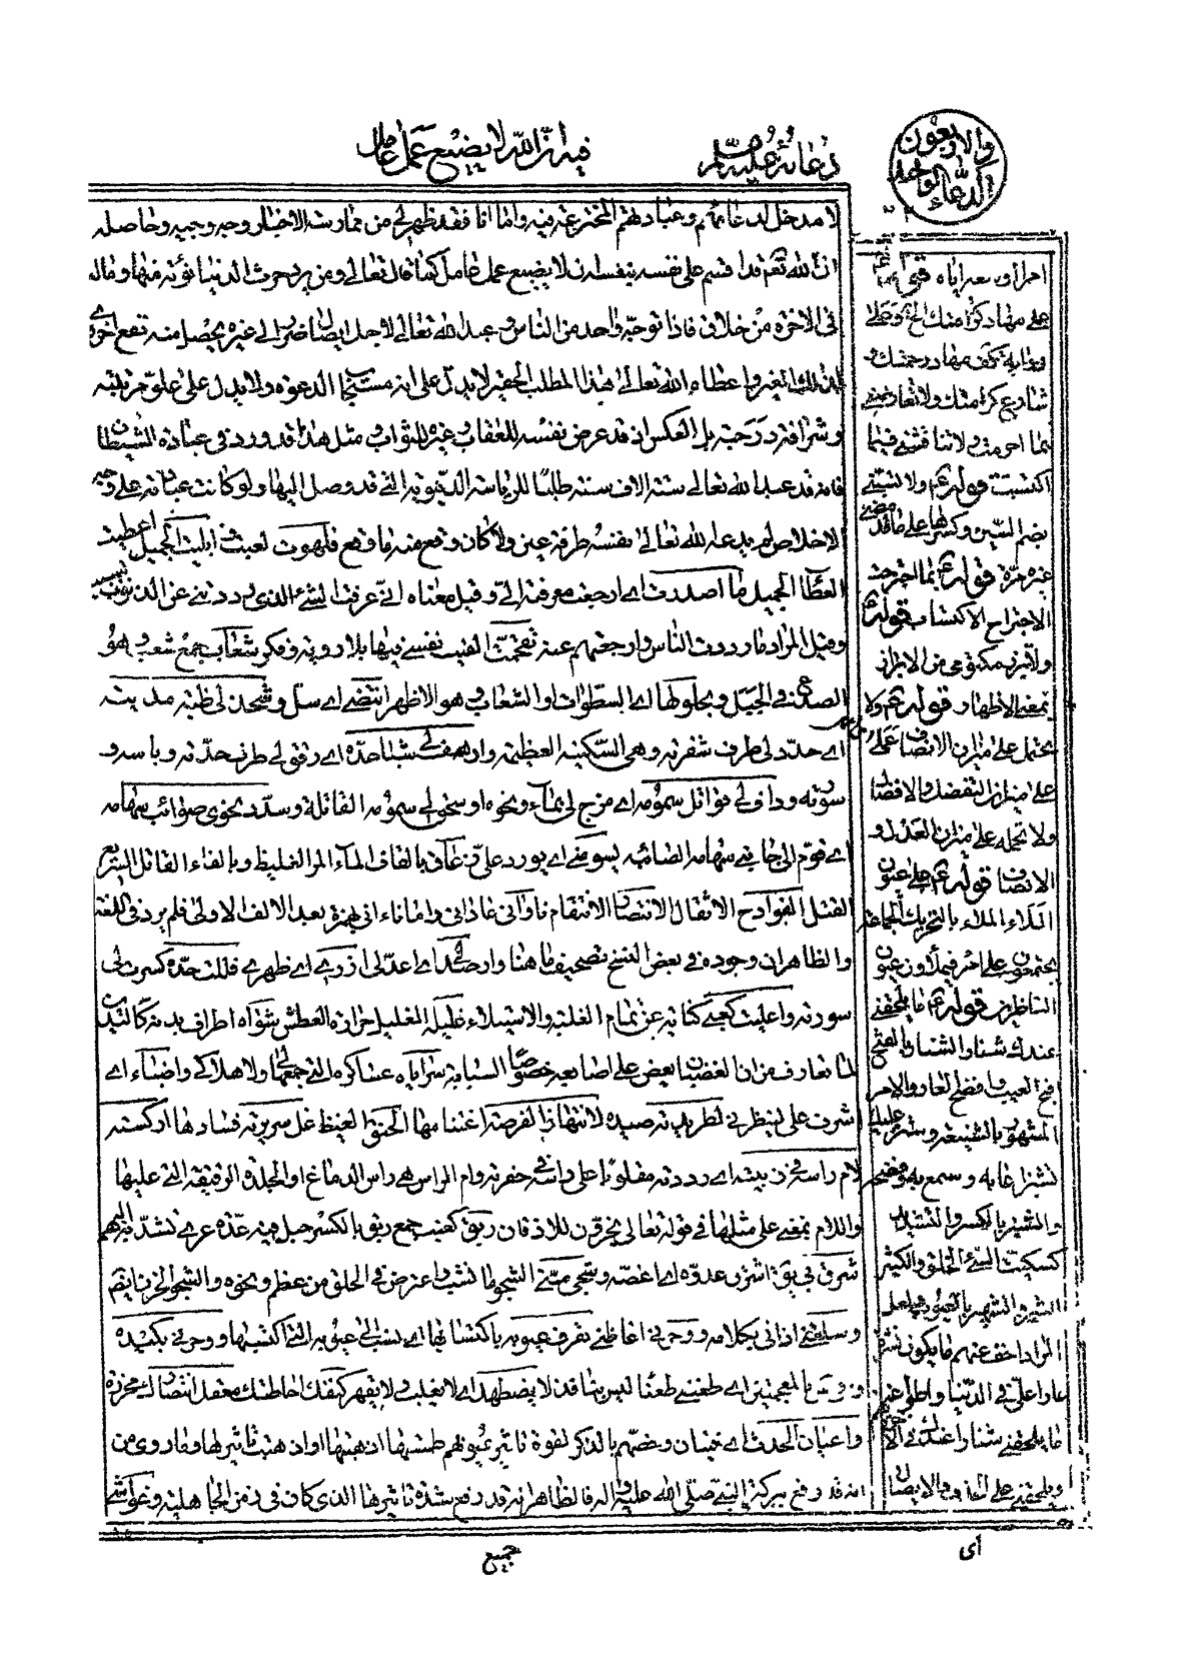 فيه ان الله لا يضيع عمل عامل
دعائه عليه السلام
والاربعون
الدعاء الواحد
لا مدخل لدعائهم وعبادتهم المخترعة فيه واما انا فقد ظهر لي من ممارسة الاخبار وجه وجيه وحاصله
ان الله تعم قد اقسم على نفسه بنفسه ان لا يضيع عمل عامل كما قال تعالى ومن يرد حرث الدنيا نؤته منها وماله
في الاخرة من خلاق فاذا توجه واحد من الناس وعبد الله تعالى لاجل ايصال ضرر الى غيره يحصل منه نفع اخروي
لذلك الغير واعطاء الله تعالى هذا المطلب الحقير لا يدل على انه مستجاب الدعوة ولا يدل على علو مرتبته
وشرافة درجته بل العكس اذ قد عرض نفسه للعقاب وغيره للثواب ومثل هذا قد ورد في عبادة الشيطان
فانه قد عبد الله تعالى ستة الاف سنة طلبا للرياسة الدنيوية التي قد وصل اليها ولو كانت عباداته على وجه
الاخلاص لم يدعه الله تعالى بنفسه طرفة عين ولا كان وقع منه ما وقع فلهوت لعبت ابليت الجميل اعطيت
العطاء الجميل ما اصدرت اي ارجعت معرفته الي وقيل معناه اني عرفت الشيء الذي رددتني عن الذنوب بسببه
وقيل المراد ما رددت الناس وارجعتهم عنه تقحمت القيت نفسي فيها بلا روية وفكر شعاب جمع شعب وهو
الصدع في الجبل وبحلولها اي السطوات او الشعاب وهو الاظهر انتضى اي سل وشحذ لي ظبة مديته
اي حدد لي طرف شفرته وهي السكينة العظيمة وارهف لي شبا حده اي رقق لي طرف حدته وباسه و
سورته وداف لي قواتل سمومه اي مزج لي بماء ونحوه او سحق لي سمومه القاتلة وسدد نحوي صوائب سهامه
اي قوم الى جانبي سهامه الصائبة يسومني اي يورد علي زعاق بالقاف الماء المر الغليظ وبالفاء القاتل السريع
القتل الفوادح الاثقال الانتصار الانتقام ناواني عاداني واما ناءاني بهمزة بعد الالف الاولى فلم يرد في اللغة
والظاهر ان وجوده في بعض النسخ تصحيف ما هنا وارصد لي اي اعد لي ازري اي ظهري فللت حده كسرت لي
سورته واعليت كعبي كناية عن تمام الغلبة والاستيلاء غليله الغليل حرارة العطش شواه اطراف بدنه كاليدين
لما تعارف من ان الغضبان يعض على اصابعه خصوصا السبابة سراياه عساكره التي جمعها لي ولاهلاكي واضباء اي
اشرف علي لينظر في لطريدته صيده لانتهاز الفرصة اغتنامها الحنق الغيظ غل سريرته فسادها اركسته
لام راسه في زبيته اي رددته مقلوبا على راسه في حفرته وام الراس هي راس الدماغ او الجلدة الرقيقة التي عليها
واللام بمعنى على مثلها في قوله تعالى يخرون للاذقان ربق كعنب جمع ربق بالكسر حبل فيه عدة عرى تشد به البهم
شرق بي بقى اشرق عدوه اي اغصه وشجى مني الشجو ما نشب واعترض في الحلق من عظم ونحوه والشجو الحزن ايضا
وسلقني اذاني بكلامه ووحرني اغاظني بقرف عيوبه باكتسابها اي نسب الي عيوبه التي اكتسبها ووحرني بكيده
بالمعجمتين اي طعنني طعنا ليس بنافذ لا يضطهد اي لا يغلب ولا يقهر كنفك احاطتك معقل انتصارك محرزه
واعيان الحدث اي خيان وخصهم بالذكر لقوة تاثير عيونهم طمستها اذهبتها او اذهبت تاثيرها وما روي من
انه قد رفع ببركة النبي صلى الله عليه واله فالظاهر انه قد رفع شدة تاثيرها الذي كان في زمن الجاهلية وغواشي
جميع
على مهاد كرامتك
برواية كنف مهاد رحمتك و
شارع كرامتك ولا تعاقبني
بما اجرمت ولا تناقشني فيما
اكتسبت قوله عم ولا تشيني
بضم السين وكسرها على ما قد مضى
غير مرة قوله عم بما اجترحت
الاجتراح الاكتساب قوله عم
ولا تبرز مكتومي من الابراز
بمعنى الاظهار قوله عم ولا
تحتمل على ميزان الانصاف عملي
على ميزان التفضل والافضال
ولا تحمله على ميزان العدل و
الانصاف قوله عم على عيون
الملاء الملاء بالتحريك الجماعة
يجتمعون على امر فيملاؤن عيون
الناظرين قوله عم ما يلحقني
عندك شنارا الشنار بالفتح
اقبح العيب وافضح العار والامر
المشهور بالشنعة وشنر عليه
تشنيرا عابه وسمع به وفضحه
والشنير بالكسر والتشديد
كسكيت السيء الخلق والكثير
الشر الشهير بالعيوب ولعل
المراد اخف عنهم ما يكون نشره
عارا علي في الدنيا واطو عنهم
ما يلحقني شنارا عندك في الاخرة
اي